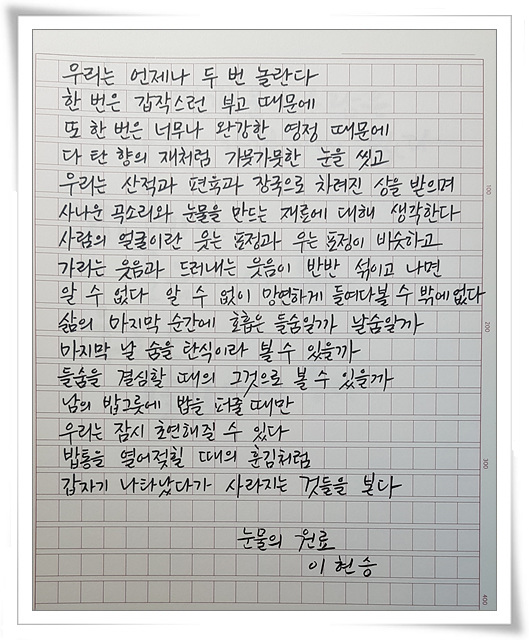 우리는 언제나 두 번 놀란다
한 번은 갑작스런 부고 때문에
또 한 번은 너무나 완강한 영정 때문에
다 탄 향의 재처럼 가뭇가뭇한 눈을 씻고
우리는 산적과 편육과 장국으로 차려진 상을 받으며
사나운 곡소리와 눈물을 만드는 재료에 대해 생각한다
사람의 얼굴이란 웃는 표정과 우는 표정이 비슷하고
가리는 웃음과 드러내는 웃음이 반반 섞이고 나면
알 수 없다 알 수 없이 망연하게 들여다볼 수 밖에 없다
삶의 마지막 순간에 호흡은 들숨일까 날숨일까
마지막 날 숨을 탄식이라 볼 수 있을까
들숨을 결심할 때의 그것으로 볼 수 있을까
남의 밥그릇에 밥을 퍼줄 때만
우리는 잠시 초연해질 수 있다
밥통을 열어젖힐 때의 훈김처럼
갑자기 나타났다가 사라지는 것들을 본다
눈물의 원료
이현승
100
200
300
400